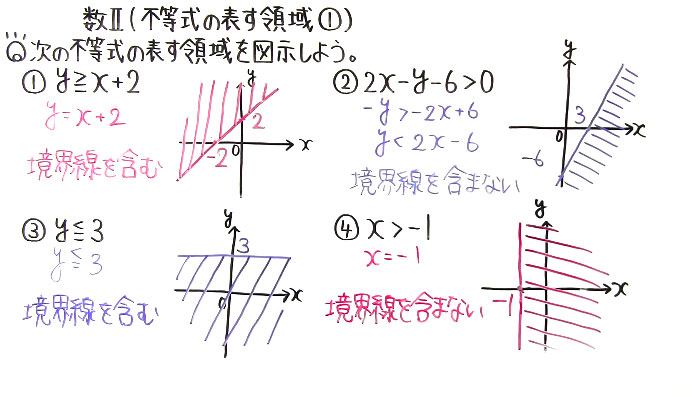 数Ⅱ(不等式の表す領域①)
次の不等式の表す領域を図示しよう。
① y≧x+2
y=x+2
境界線を含む
y
2
-2
0
x
② 2x-y-6>0
-y>-2x+6
y<2x-6
境界線を含まない
y
3
0
x
-6
③ y≦3
y≦3
境界線を含む
y
3
0
x
④ x>-1
x=-1
境界線を含まない
y
-1
x